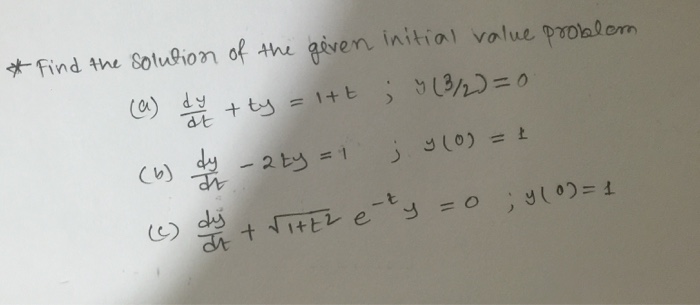 * Find the solution of the given initial value problem
(a) dy/dt + ty = 1+t ; y(3/2) = 0
(b) dy/dt - 2ty = 1 ; y(0) = 1
(c) dy/dt + √1+t² e^-t y = 0 ; y(0) = 1